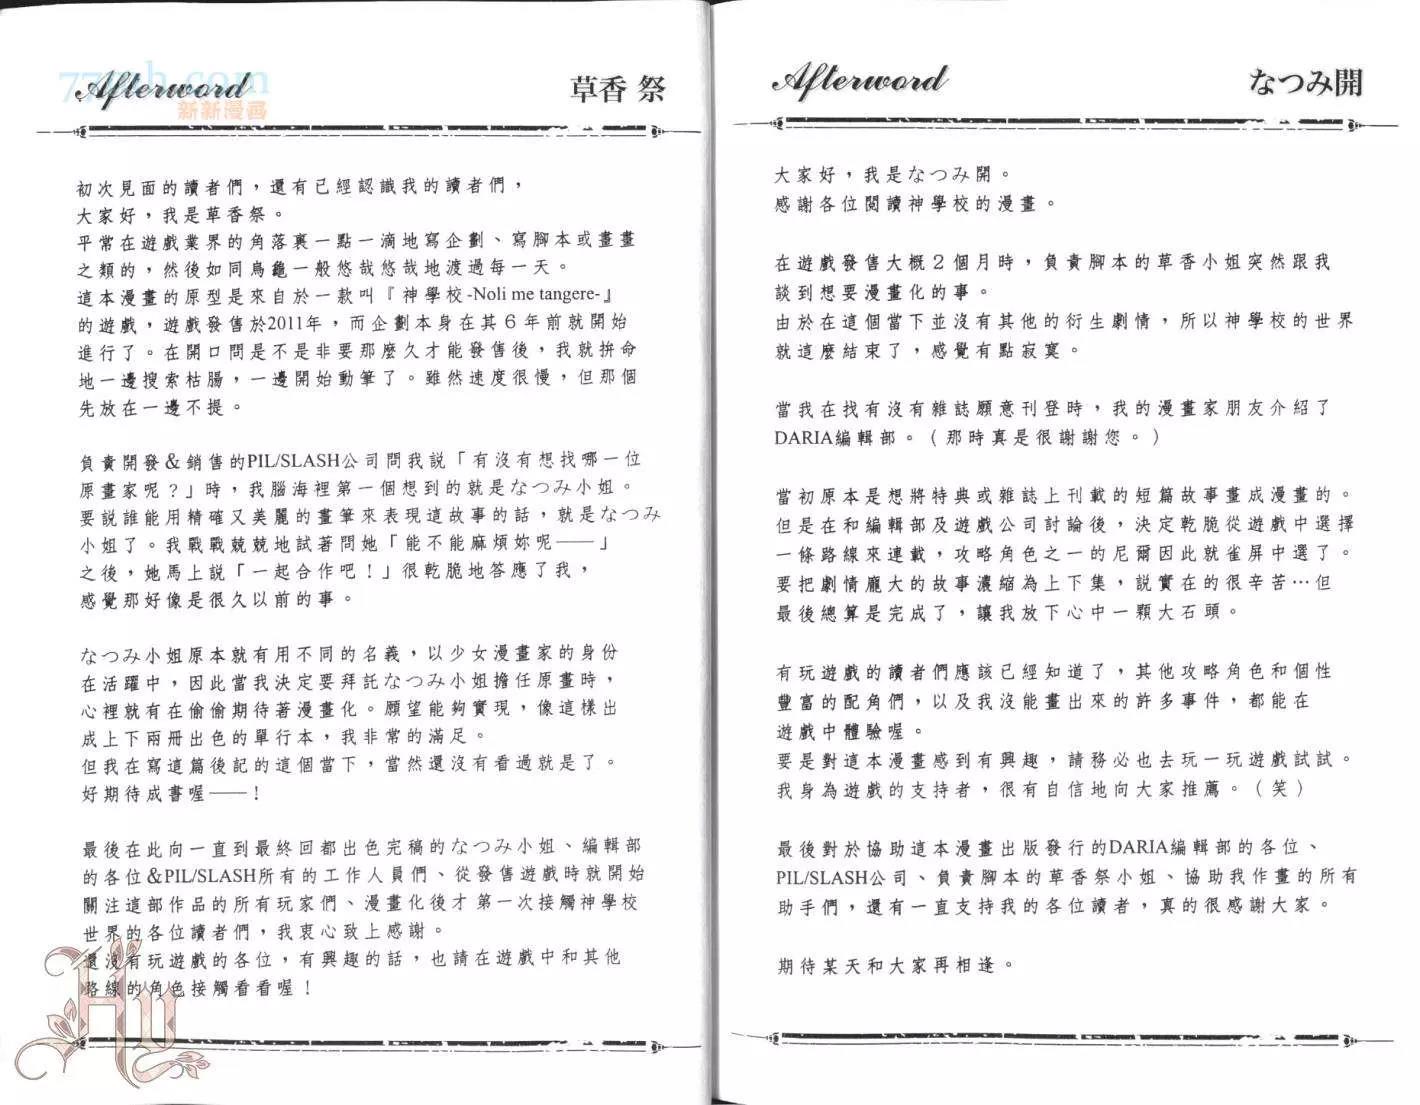 Afterword
草香 祭
新新漫畫
初次見面的讀者們，還有已經認識我的讀者們，
大家好，我是草香祭。
平常在遊戲業界的角落裏一點一滴地寫企劃、寫腳本或畫畫
之類的，然後如同烏龜一般悠哉悠哉地渡過每一天。
這本漫畫的原型是來自於一款叫『神學校-Noli me tangere-』
的遊戲，遊戲發售於2011年，而企劃本身在其６年前就開始
進行了。在開口問是不是非要那麼久才能發售後，我就拚命
地一邊搜索枯腸，一邊開始動筆了。雖然速度很慢，但那個
先放在一邊不提。
負責開發＆銷售的PIL/SLASH公司問我說「有沒有想找哪一位
原畫家呢？」時，我腦海裡第一個想到的就是なつみ小姐。
要說誰能用精確又美麗的畫筆來表現這故事的話，就是なつみ
小姐了。我戰戰兢兢地試著問她「能不能麻煩妳呢——」
之後，她馬上說「一起合作吧！」很乾脆地答應了我，
感覺那好像是很久以前的事。
なつみ小姐原本就有用不同的名義，以少女漫畫家的身份
在活躍中，因此當我決定要拜託なつみ小姐擔任原畫時，
心裡就有在偷偷期待著漫畫化。願望能夠實現，像這樣出
成上下兩冊出色的單行本，我非常的滿足。
但我在寫這篇後記的這個當下，當然還沒有看過就是了。
好期待成書喔——！
最後在此向一直到最終回都出色完稿的なつみ小姐、編輯部
的各位＆PIL/SLASH所有的工作人員們、從發售遊戲時就開始
關注這部作品的所有玩家們、漫畫化後才第一次接觸神學校
世界的各位讀者們，我衷心致上感謝。
還沒有玩遊戲的各位，有興趣的話，也請在遊戲中和其他
路線的角色接觸看看喔！
Afterword
なつみ開
大家好，我是なつみ開。
感謝各位閱讀神學校的漫畫。
在遊戲發售大概２個月時，負責腳本的草香小姐突然跟我
談到想要漫畫化的事。
由於在這個當下並沒有其他的衍生劇情，所以神學校的世界
就這麼結束了，感覺有點寂寞。
當我在找有沒有雜誌願意刊登時，我的漫畫家朋友介紹了
DARIA編輯部。（那時真是很謝謝您。）
當初原本是想將特典或雜誌上刊載的短篇故事畫成漫畫的。
但是在和編輯部及遊戲公司討論後，決定乾脆從遊戲中選擇
一條路線來連載，攻略角色之一的尼爾因此就雀屏中選了。
要把劇情龐大的故事濃縮為上下集，說實在的很辛苦…但
最後總算是完成了，讓我放下心中一顆大石頭。
有玩遊戲的讀者們應該已經知道了，其他攻略角色和個性
豐富的配角們，以及我沒能畫出來的許多事件，都能在
遊戲中體驗喔。
要是對這本漫畫感到有興趣，請務必也去玩一玩遊戲試試。
我身為遊戲的支持者，很有自信地向大家推薦。（笑）
最後對於協助這本漫畫出版發行的DARIA編輯部的各位、
PIL/SLASH公司、負責腳本的草香祭小姐、協助我作畫的所有
助手們，還有一直支持我的各位讀者，真的很感謝大家。
期待某天和大家再相逢。